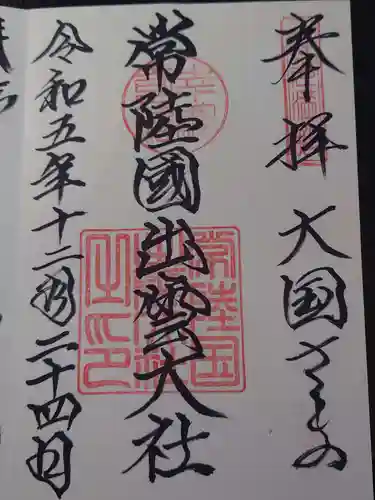 奉拝 大国さまの
常陸國出雲大社
令和五年十二月二十四日
常陸国